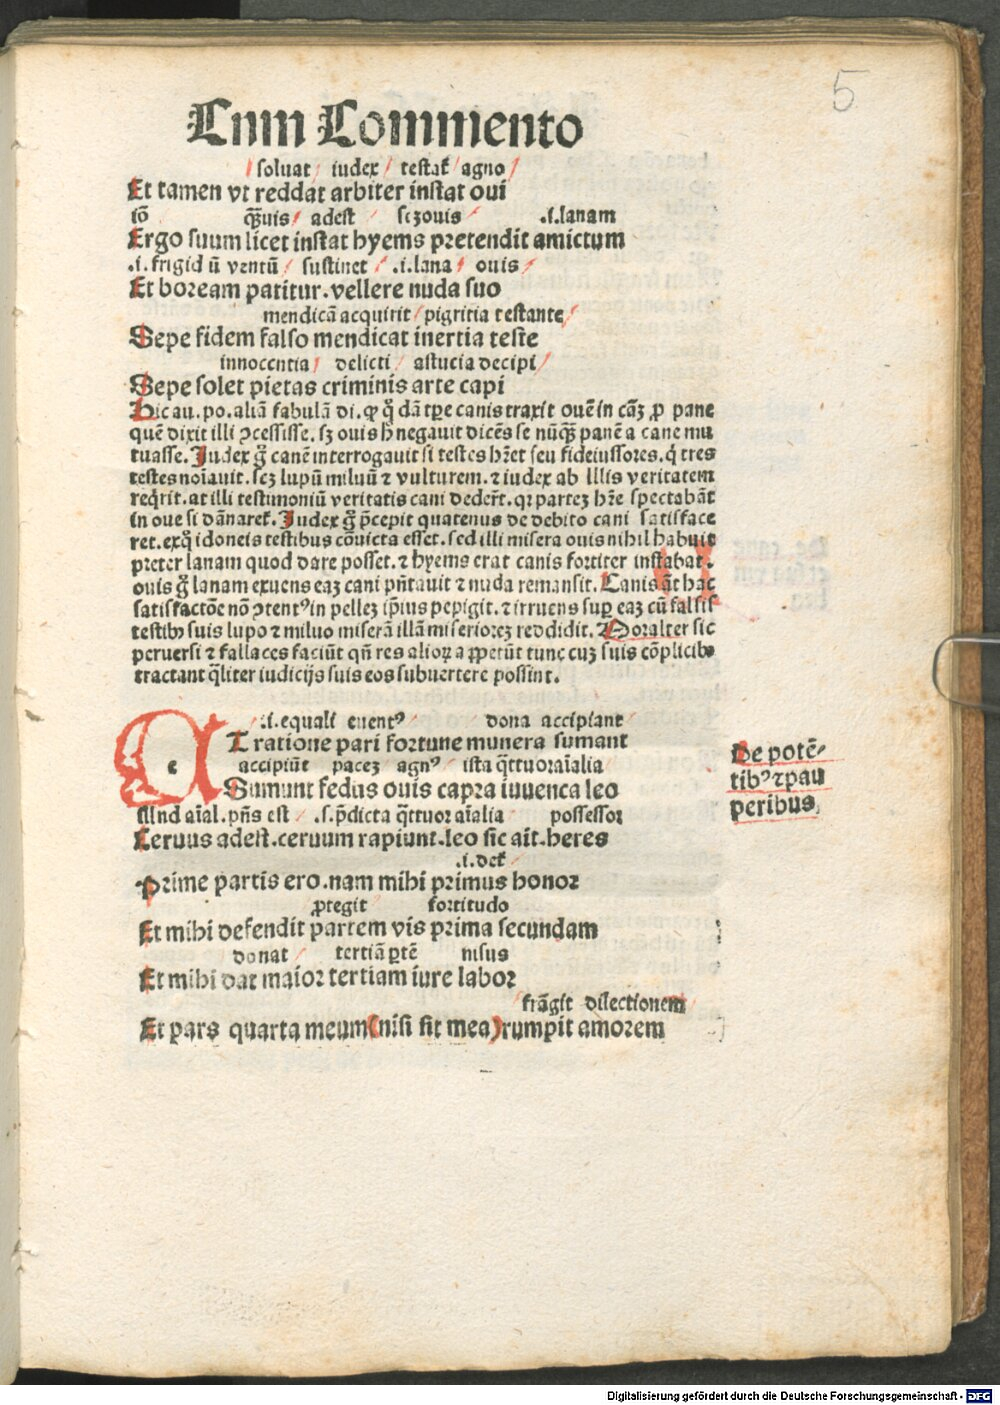 5
Cum Commento
soluat iudex testat̃ agno
Et tamen vt reddat arbiter instat oui
iõ q̃uis adest sczouis .i.lanam
Ergo suum licet instat hyems pretendit amictum
.i.frigid ũ ventũ sustinet .i.lana ouis
Et boream patitur.vellere nuda suo
mendicã acquirit pigritia testante
Sepe fidem falso mendicat inertia teste
innocentia delicti astucia decipi
Sepe solet pietas criminis arte capi
Hic au.po.aliã fabulã di.ꝙ q̃ dã tp̃e canis traxit ouẽ in cãʒ ꝓ pane
quẽ dixit illi ꝯcessisse. sʒ ouis h̃ negauit dicẽs se nũq̃ panẽ a cane mu
tuasse. Iudex g̃ canẽ interrogauit si testes hr̃et seu fideiussores. q̃ tres
testes noĩauit. scʒ lupũ miluũ ⁊ vulturem. ⁊ iudex ab illis veritatem
req̃rit. at illi testimoniũ veritatis cani dedert̃. qꝛ parteʒ hr̃e spectabãt
in oue si dãnaret̃. Iudex g̃ p̃cepit quatenus de debito cani satisface
ret. exq̃ idoneis testibus cõuicta esset. sed illi misera ouis nihil habuit
preter lanam quod dare posset. ⁊ hyems erat canis fortiter instabat.
ouis g̃ lanam exuens eaʒ cani pñtauit ⁊ nuda remansit. Canis ãt hac
satisfactõe nõ ꝯtentꝰ in pelleʒ ip̃ius pepigit. ⁊ irruens sup̱ eaʒ cũ falsis
testibꝰ suis lupo ⁊ miluo miserã illã miserioreʒ reddidit. Moraliter sic
peruersi ⁊ fallaces faciũt qñ res alioꝝ a ꝓpetũt tunc cuʒ suis cõplicibꝰ
tractant q̃liter iudicijs suis eos subuertere possint.
.i.equali euentꝰ dona accipiant
T ratione pari fortune munera sumant
accipiũt paceʒ agnꝰ ista q̃ttuoraĩalia
e Sumunt fedus ouis capra iuuenca leo
De potẽ
tibꝰ ⁊pau
peribus
Illud aĩal.pñs est .s.p̃dicta q̃ttuor aĩalia possessor
Ceruus adest.ceruum rapiunt.leo sic ait.heres
.i.det̃
Prime partis ero.nam mihi primus honor
ꝓtegit fortitudo
Et mihi defendit partem vis prima secundam
donat tertiã p̱tẽ nisus
Et mihi dat maior tertiam iure labor
frãgit dilectionem
Et pars quarta meum(nisi sit mea)rumpit amorem
Digitalisierung gefördert durch die Deutsche Forschungsgemeinschaft - DFG